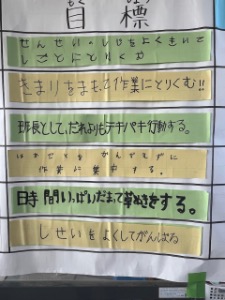 もく ひょう
目標
せんせいのしじをよくきいて
しごとにとりくむ
きまりをまもって作業にとりくむ!!
班長として、だれよりもテキパキ行動する。
作業に集中する。
時間いっぱいだまって草ぬきをする。
しせいをよくしてがんばる